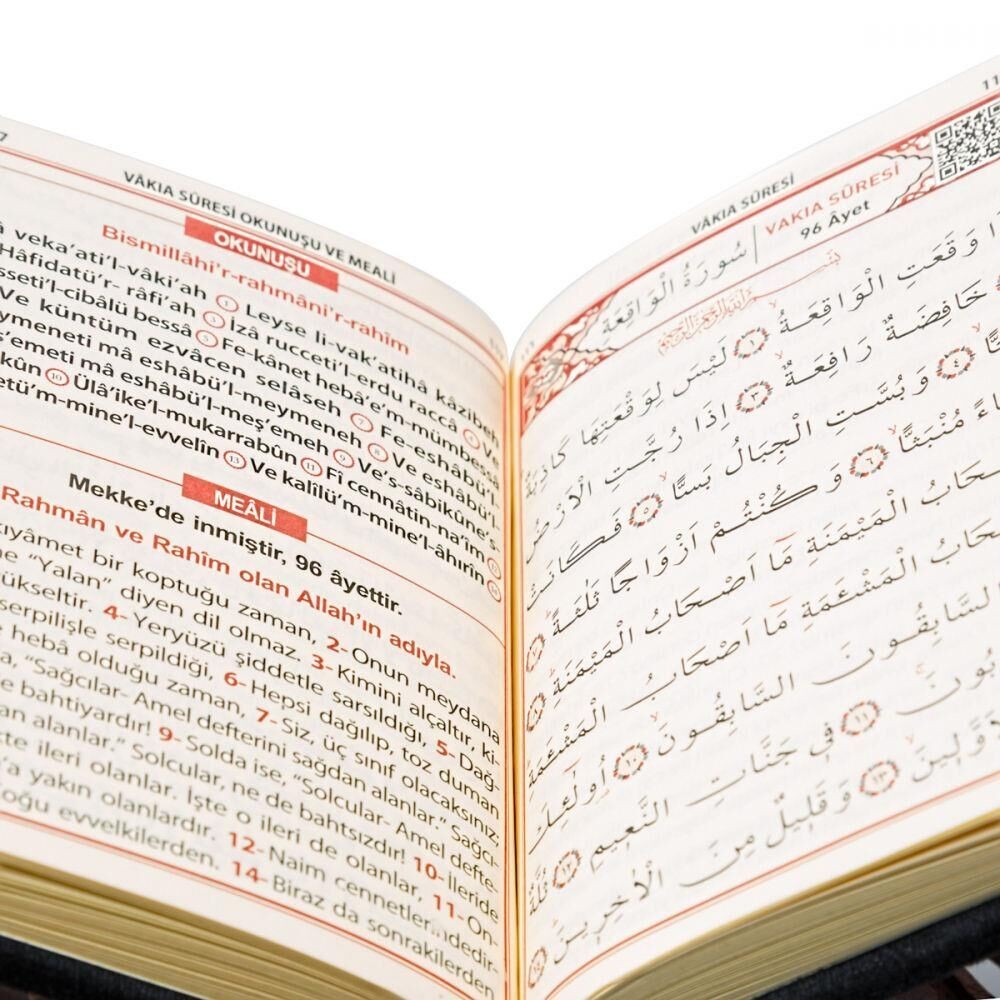 VÂKIA SÛRESİ OKUNUŞU VE MEALİ
OKUNUŞU
Bismillâhi'r-rahmâni'r-rahîm
veka'ati'l-vâki'ah ① Leyse li-vak'atihâ kâzibeh
Hâfidatü'r- râfi'ah ③ İzâ rucceti'l-erdu raccâ ④ Ve
sseti'l-cibâlü bessâ ⑤ Fe-kânet hebâ'e'm-mümbessâ
Ve küntüm ezvâcen selâseh ⑦ Fe-eshâbü'l-
ymeneti mâ eshâbü'l-meymeneh ⑧ Ve eshâbü'l-
ş'emeti mâ eshâbü'l-meş'emeh ⑨ Ve's-sâbikûne's-
kûn ⑩ Ülâ'ike'l-mukarrabûn ⑪ Fî cennâtin-na'îm ⑫
etü'm-mine'l-evvelîn ⑬ Ve kalîlü'm-mine'l-âhırîn ⑭
MEÂLİ
Mekke'de inmiştir, 96 âyettir.
Rahmân ve Rahîm olan Allah'ın adıyla.
kıyâmet bir koptuğu zaman, 2- Onun meydana
"Yalan" diyen dil olmaz. 3- Kimini alçaltır, ki-
yükseltir. 4- Yeryüzü şiddetle sarsıldığı, 5- Dağ-
serpilişle serpildiği, 6- Hepsi dağılıp, toz duman
heba olduğu zaman, 7- Siz, üç sınıf olacaksınız;
"Sağcılar- Amel defterini sağdan alanlar." Sağcı-
bahtiyardır! 9- Solda ise, "Solcular- Amel defte-
alanlar." Solcular, ne de bahtsızdır! 10- İleride
şte ileri olanlar. İşte o ileri de olanlar, 11- On-
'a yakın olanlardır. 12- Naim cennetlerindedir-
Çoğu evvelkilerden. 14- Biraz da sonrakilerden
VÂKIA SÛRESİ
سُورَةُ الْوَاقِعَةِ
VAKIA SÛRESİ
96 Âyet
وَقَعَتِ الْوَاقِعَةُ ١ لَيْسَ لِوَقْعَتِهَا كَاذِبَةٌ
خَافِضَةٌ رَافِعَةٌ ٣ اِذَا رُجَّتِ الْاَرْضُ
٤ وَبُسَّتِ الْجِبَالُ بَسًّا ٥ فَكَانَتْ
مُنْبَثًّا ٦ وَكُنْتُمْ اَزْوَاجًا ثَلٰثَةً ٧
الْمَيْمَنَةِ مَٓا اَصْحَابُ الْمَيْمَنَةِ ٨
الْمَشْـَٔمَةِ مَٓا اَصْحَابُ الْمَشْـَٔمَةِ
السَّابِقُونَ السَّابِقُونَ ١٠ اُولٰٓئِكَ
١١ فِي جَنَّاتِ النَّعِيمِ ١٢ ثُلَّةٌ
١٣ وَقَلِيلٌ مِنَ الْاٰخِرِينَ ١٤